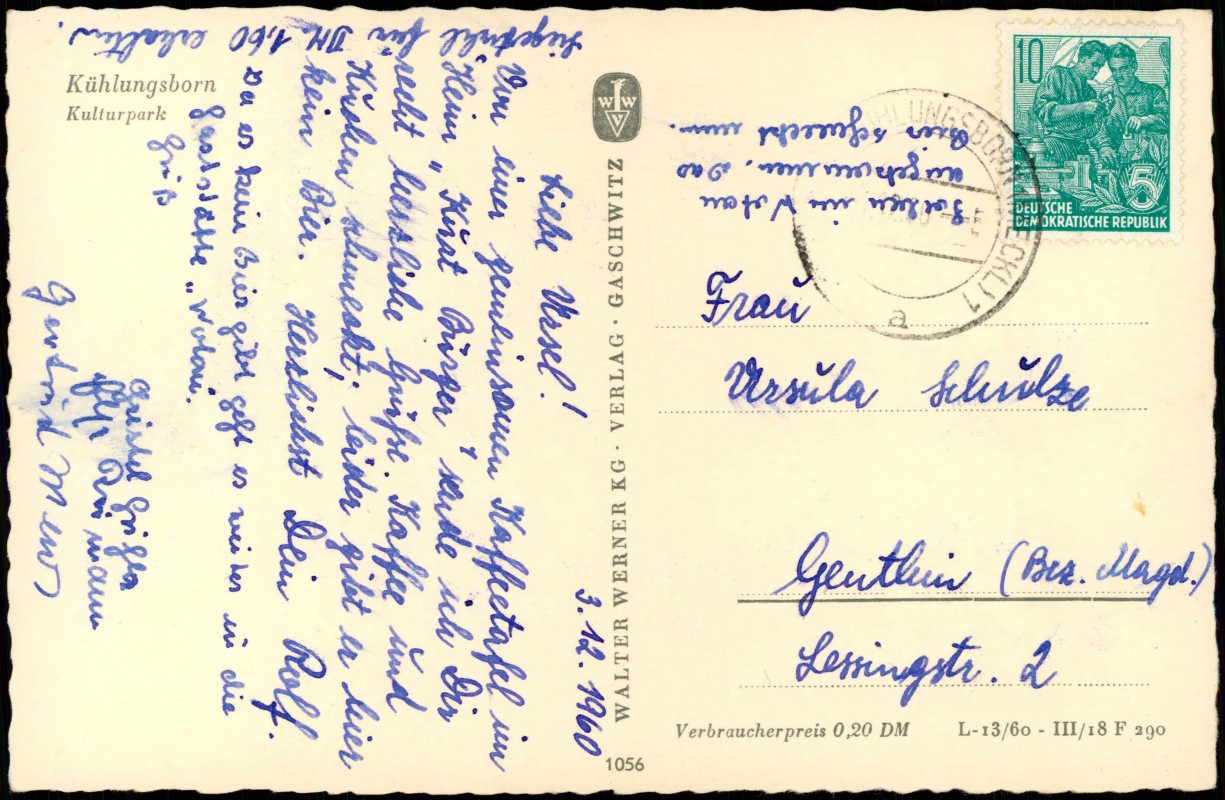 Kühlungsborn
Kulturpark
3.12.1960
Liebe Ursel!
Von einer gemeinsamen Kaffeetafel im
Heim „Kurt Bürger" sende ich Dir
recht herzliche Grüße. Kaffee und
Kuchen schmeckt; leider gibt er hier
kein Bier. Herzlichst Dein Rolf.
Da es kein Bier gibt geht es weiter in die
Gaststätte „Wotan".
Gruß
Gertrud
für DM 1,60 erhalten.
Soeben im Wotan
angekommen. Das
Bier schmeckt nun.
WALTER WERNER KG · VERLAG · GASCHWITZ
WWV
1056
10
5
DEUTSCHE
DEMOKRATISCHE REPUBLIK
KÜHLUNGSBORN (MECKL) 1
a
Frau
Ursula Schulze
Genthin (Bez. Magd.)
Lessingstr. 2
Verbraucherpreis 0,20 DM
L-13/60 - III/18 F 290